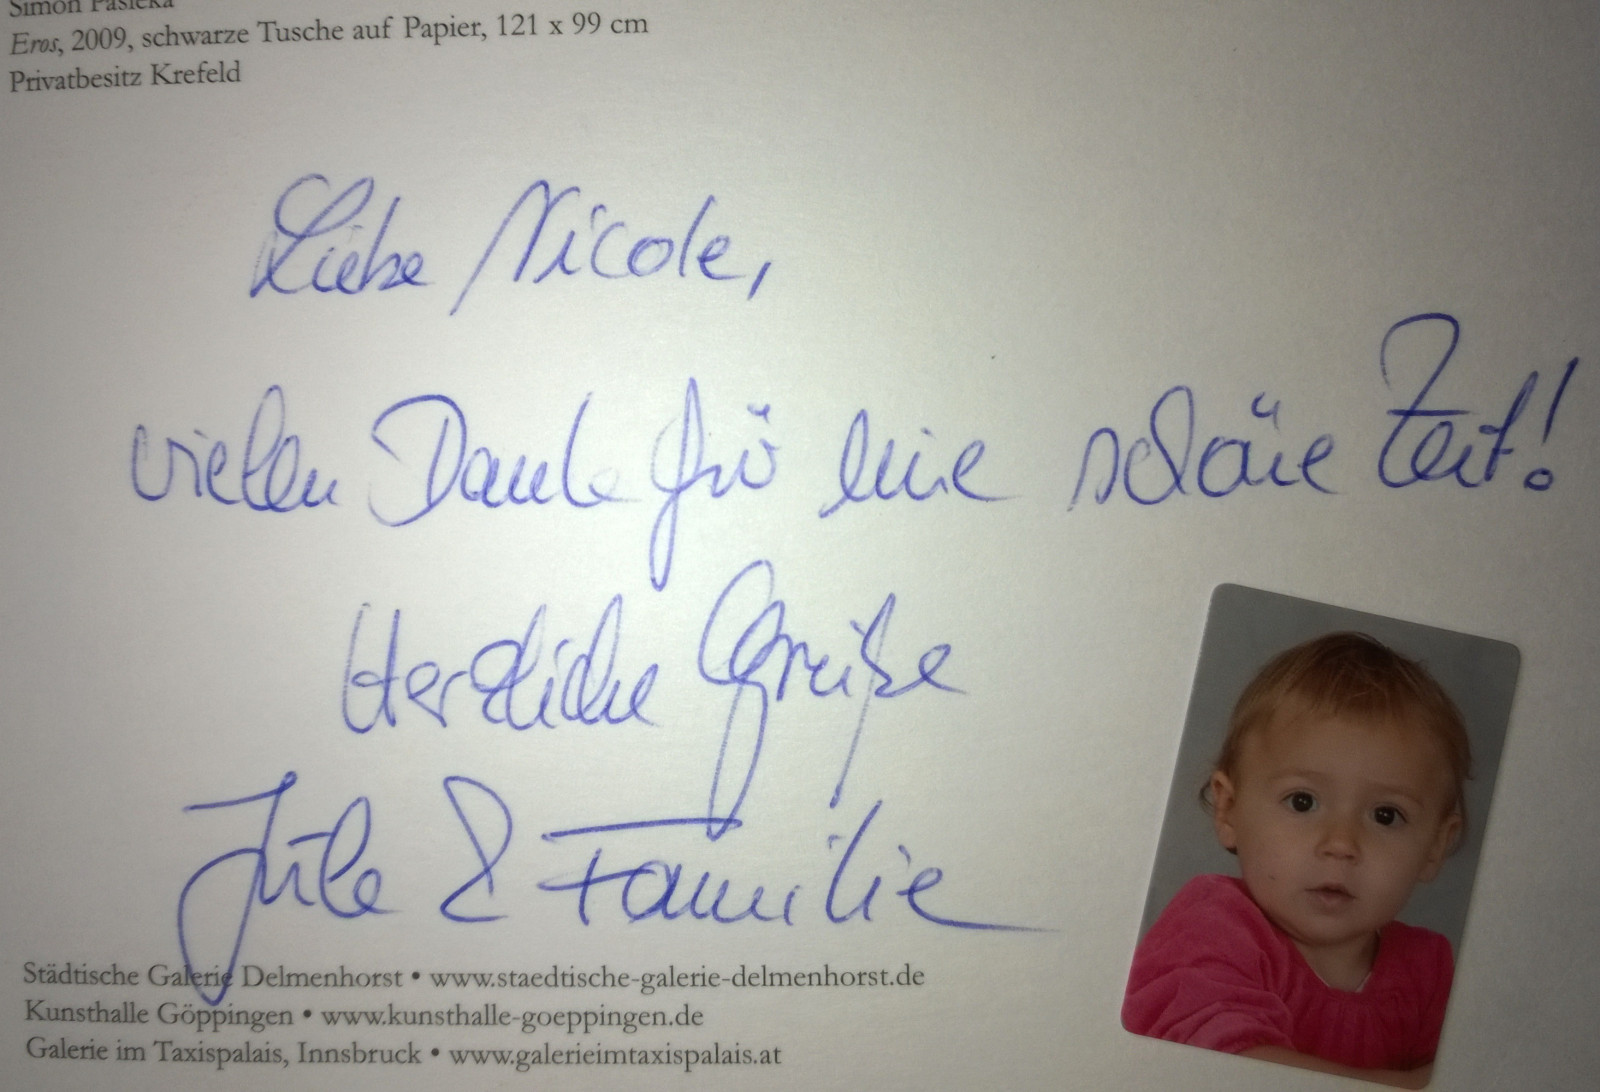 Simon Pasieka
Eros, 2009, schwarze Tusche auf Papier, 121 x 99 cm
Privatbesitz Krefeld
Liebe Nicole,
vielen Dank für eine schöne Zeit!
Herzliche Grüße
Jule & Familie
Städtische Galerie Delmenhorst • www.staedtische-galerie-delmenhorst.de
Kunsthalle Göppingen • www.kunsthalle-goeppingen.de
Galerie im Taxispalais, Innsbruck • www.galerieimtaxispalais.at